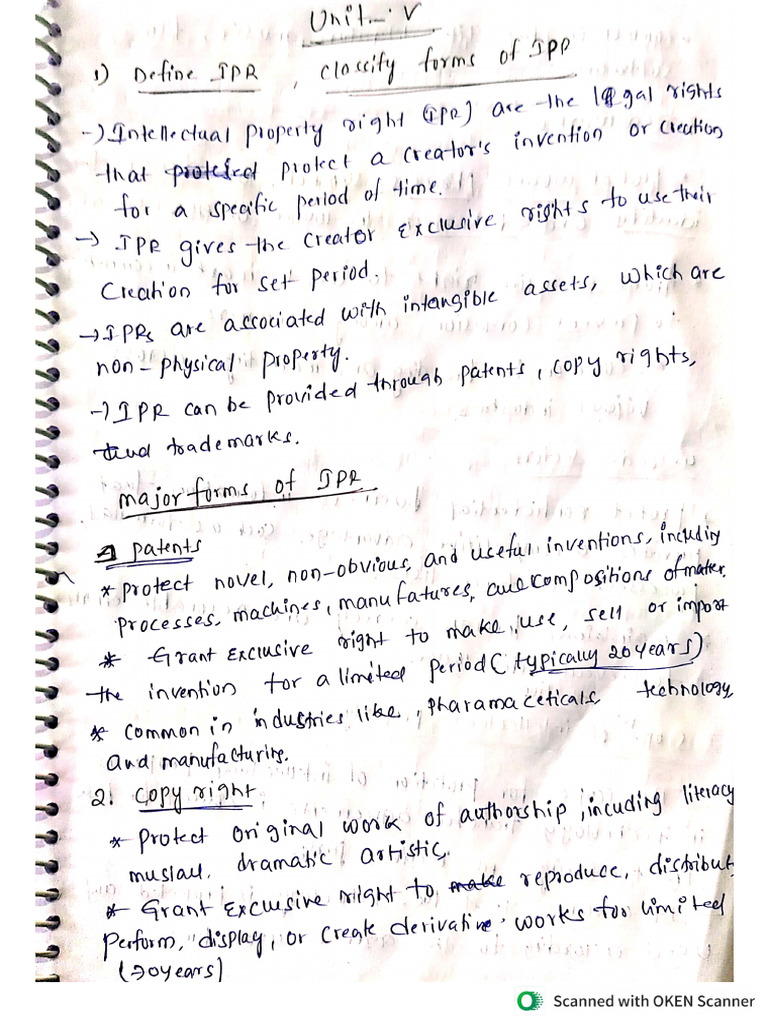 Unit - V
1) Define IPR, Classify forms of IPR
-) Intellectual property right (IPR) are the legal rights
that protect a creator's invention or creation
for a specific period of time.
-> IPR gives the creator exclusive, rights to use their
creation for set period.
-> IPRs are associated with intangible assets, which are
non-physical property.
-) IPR can be provided through patents, copy rights,
and trademarks.
major forms of IPR
1 patents
* protect novel, non-obvious, and useful inventions, includiy
processes, machines, manufatures, and compositions of matter.
* Grant Exclusive right to make, use, sell or import
the invention for a limited period (typically 20 years)
* common in industries like, pharamaceticals, technology,
and manufacturing.
2. copy right
* Protect original work of authorship, incuding literacy
muslau, dramatic, artistic,
* Grant Exclusive right to make reproduce, distribut,
perform, display, or create derivative works for limited
(70years)
Scanned with OKEN Scanner